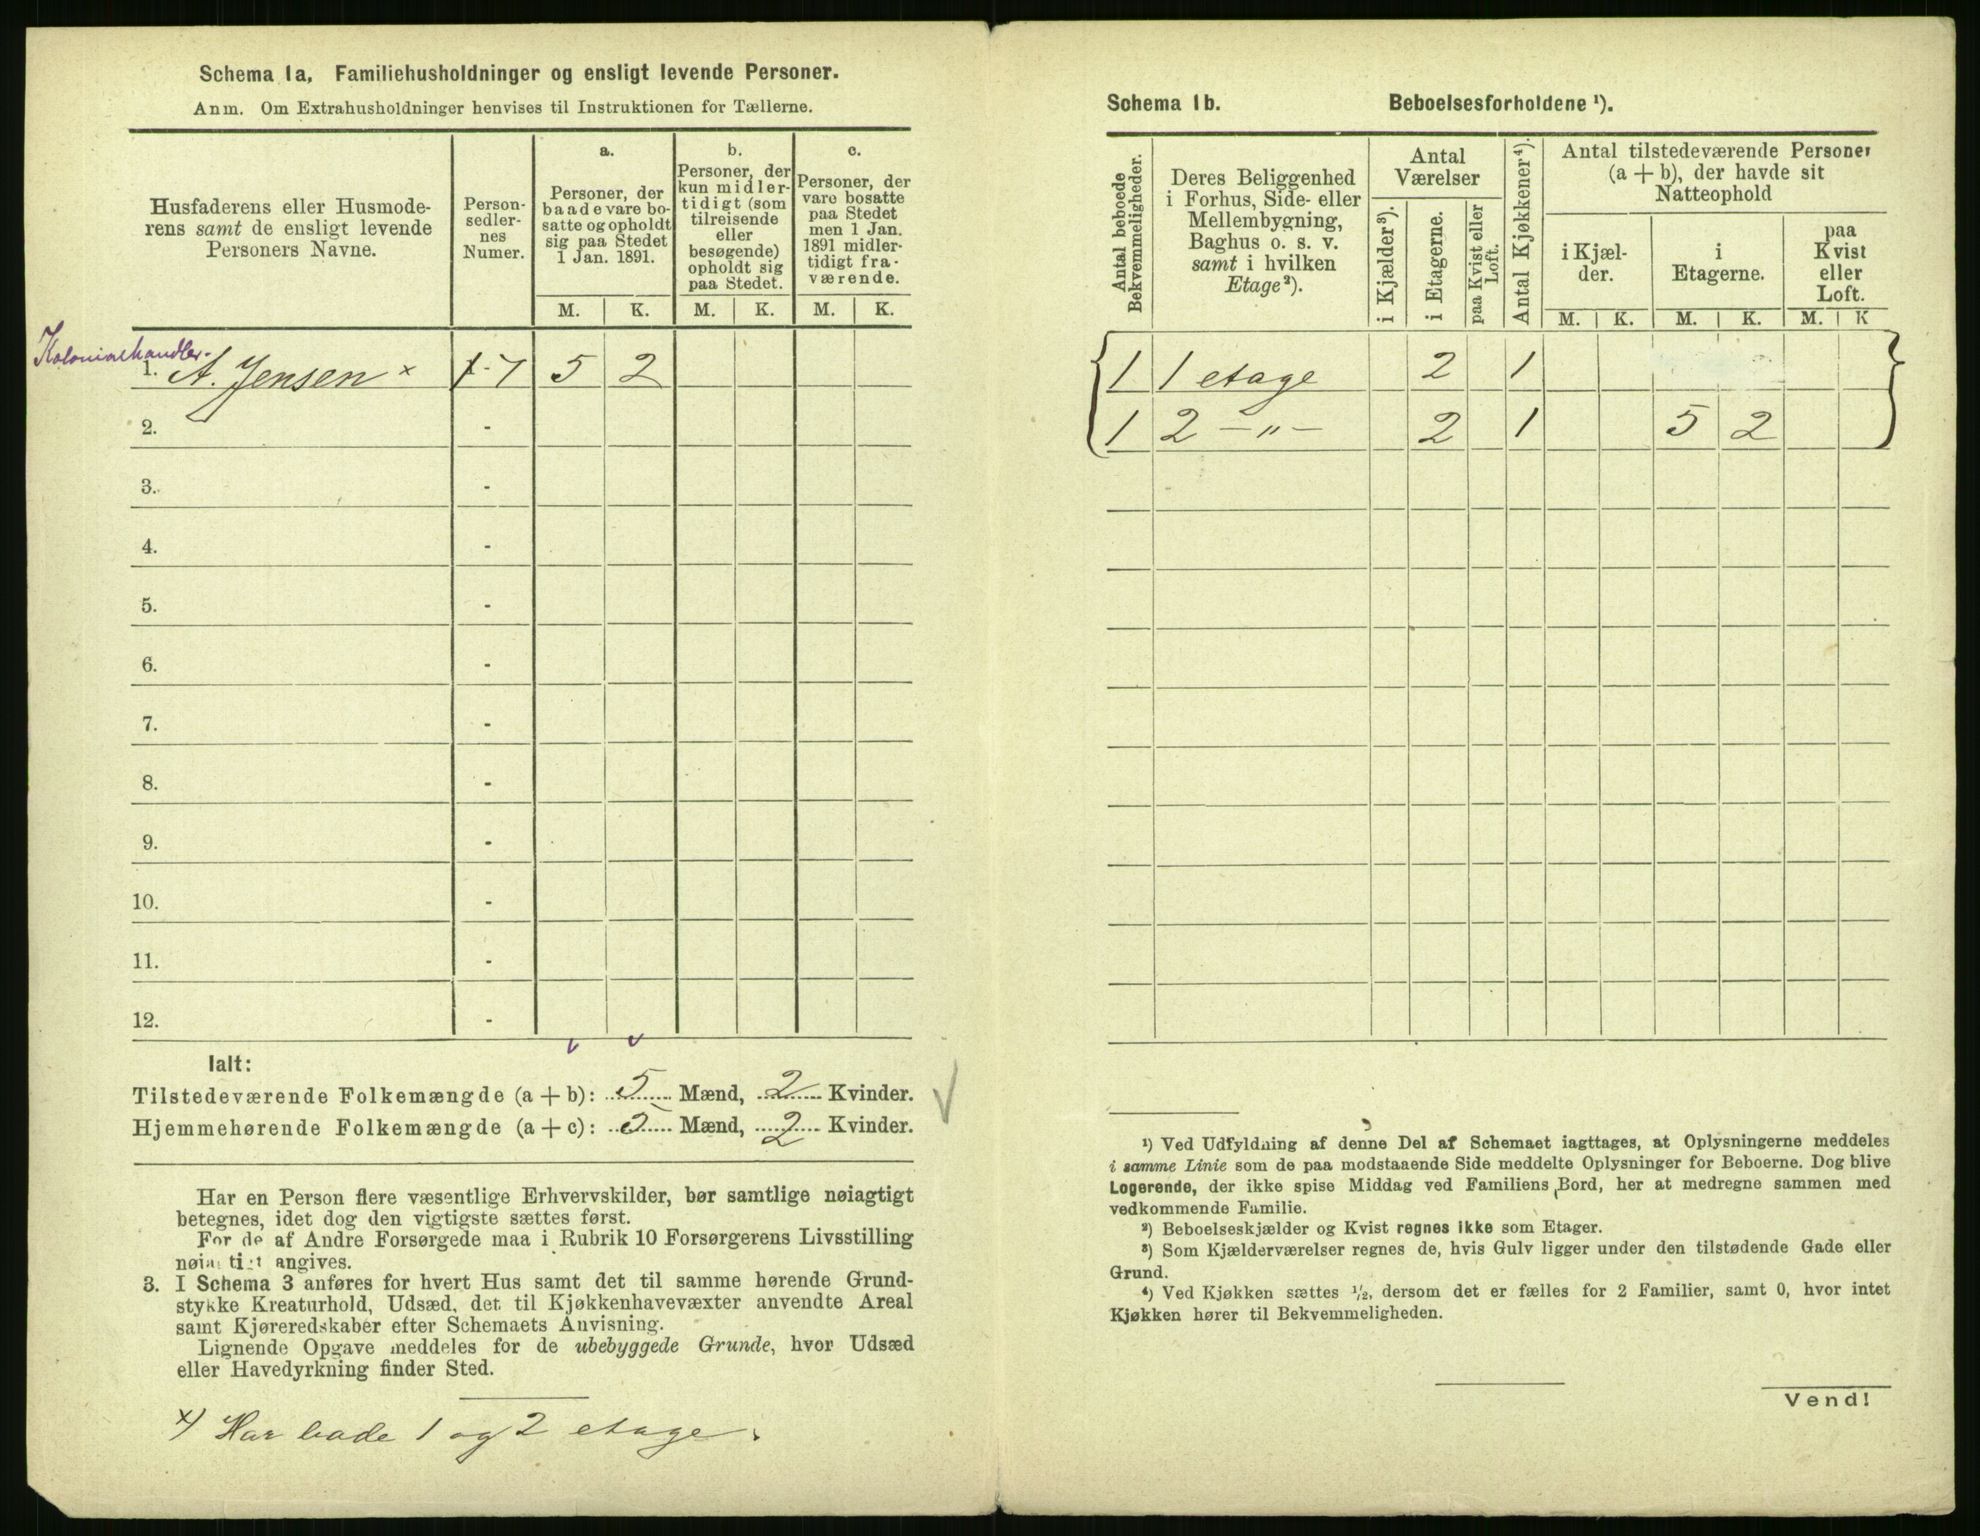 Schema 1a, Familiehusholdninger og ensligt levende Personer.
Anm. Om Extrahusholdninger henvises til Instruktionen for Tællerne.
Husfaderens eller Husmode-
rens samt de ensligt levende
Personers Navne.
Person-
sedler-
nes
Numer.
a.
Personer, der
baade vare bo-
satte og opholdt
sig paa Stedet
1 Jan. 1891.
b.
Personer, der
kun midler-
tidigt (som
tilreisende
eller
besøgende)
opholdt sig
paa Stedet.
c.
Personer, der
vare bosatte
paa Stedet
men 1 Jan.
1891 midler-
tidigt fra-
værende.
M. K. M. K. M. K.
Kolonialhandler.
1. A. Jensen × 1-7 5 2
2. -
3. -
4. -
5. -
6. -
7. -
8. -
9. -
10. -
11. -
12. -
Ialt:
Tilstedeværende Folkemængde (a + b): 5 Mænd, 2 Kvinder.
Hjemmehørende Folkemængde (a + c): 5 Mænd, 2 Kvinder.
Har en Person flere væsentlige Erhvervskilder, bør samtlige nøiagtigt
betegnes, idet dog den vigtigste sættes først.
For de af Andre Forsørgede maa i Rubrik 10 Forsørgerens Livsstilling
nøiagtigt angives.
3. I Schema 3 anføres for hvert Hus samt det til samme hørende Grund-
stykke Kreaturhold, Udsæd, det til Kjøkkenhavevæxter anvendte Areal
samt Kjøreredskaber efter Schemaets Anvisning.
Lignende Opgave meddeles for de ubebyggede Grunde, hvor Udsæd
eller Havedyrkning finder Sted.
×) Har bade 1 og 2 etage.
Schema 1b. Beboelsesforholdene ¹).
Antal beboede
Bekvemmeligheder.
Deres Beliggenhed
i Forhus, Side- eller
Mellembygning,
Baghus o. s. v.
samt i hvilken
Etage²).
Antal
Værelser
i Kjælder³).
i Etagerne.
paa Kvist eller
Loft.
Antal Kjøkkener⁴).
Antal tilstedeværende Personer
(a + b), der havde sit
Natteophold
i Kjæl-
der.
i
Etagerne.
paa
Kvist
eller
Loft.
M. K. M. K. M. K
1 1 etage 2 1
1 2 -"- 2 1 5 2
¹) Ved Udfyldning af denne Del af Schemaet iagttages, at Oplysningerne meddeles
i samme Linie som de paa modstaaende Side meddelte Oplysninger for Beboerne. Dog blive
Logerende, der ikke spise Middag ved Familiens Bord, her at medregne sammen med
vedkommende Familie.
²) Beboelseskjælder og Kvist regnes ikke som Etager.
³) Som Kjælderværelser regnes de, hvis Gulv ligger under den tilstødende Gade eller
Grund.
⁴) Ved Kjøkken sættes ½, dersom det er fælles for 2 Familier, samt 0, hvor intet
Kjøkken hører til Bekvemmeligheden.
Vend!